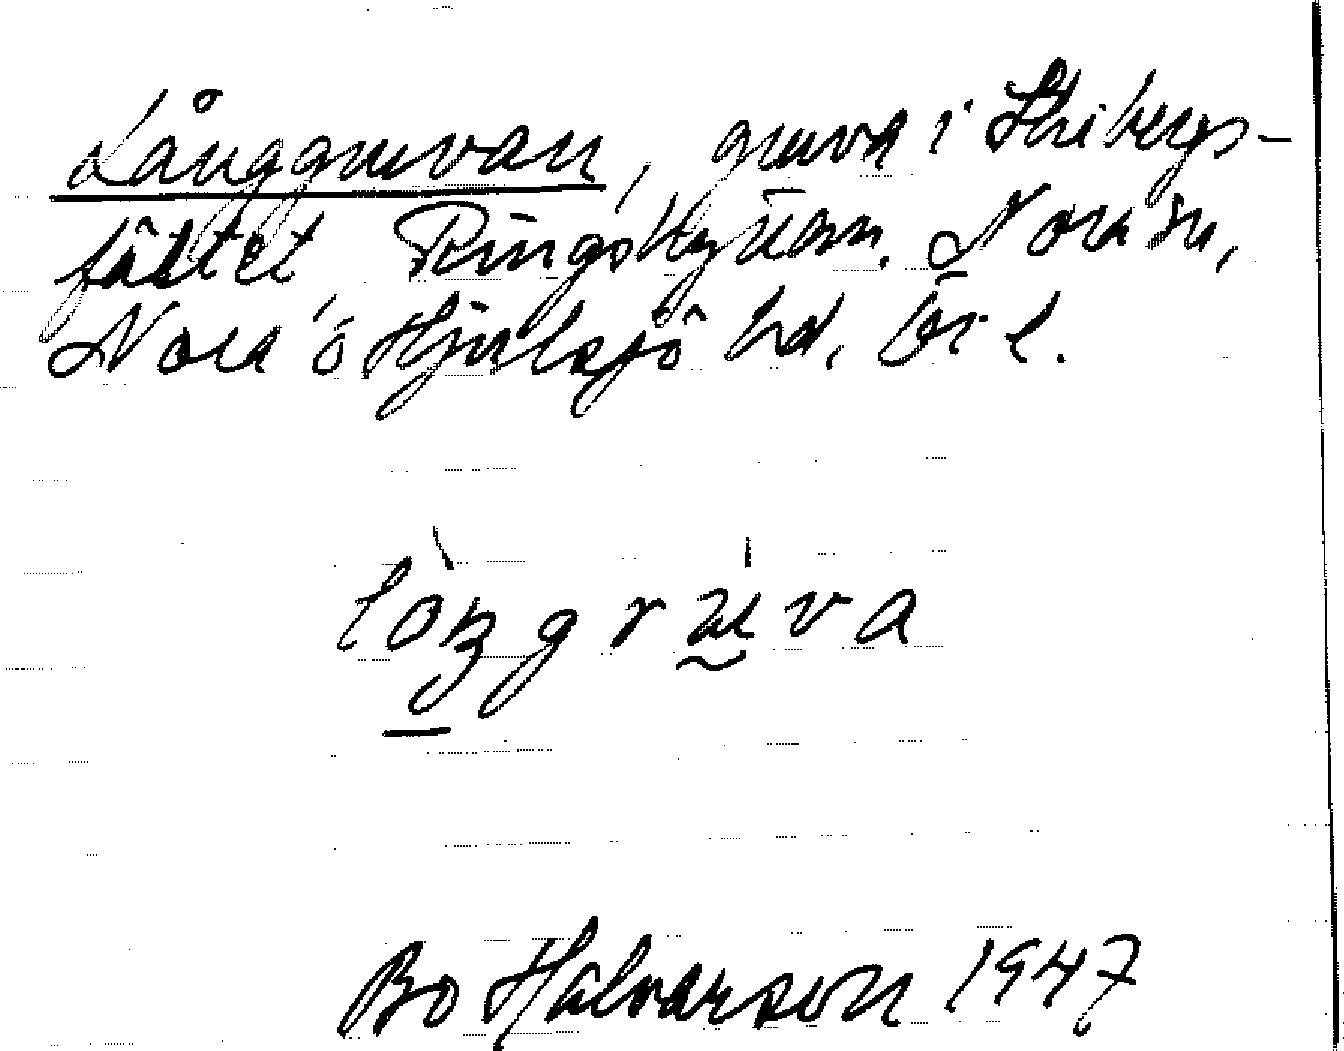 Långgruvan, gruva i Stribergs-
fältet Ringshyttan. Nora sn,
Nora o Hjulsjö hd. Ör l.
lòŋgrúva
Bo Halvarson 1947